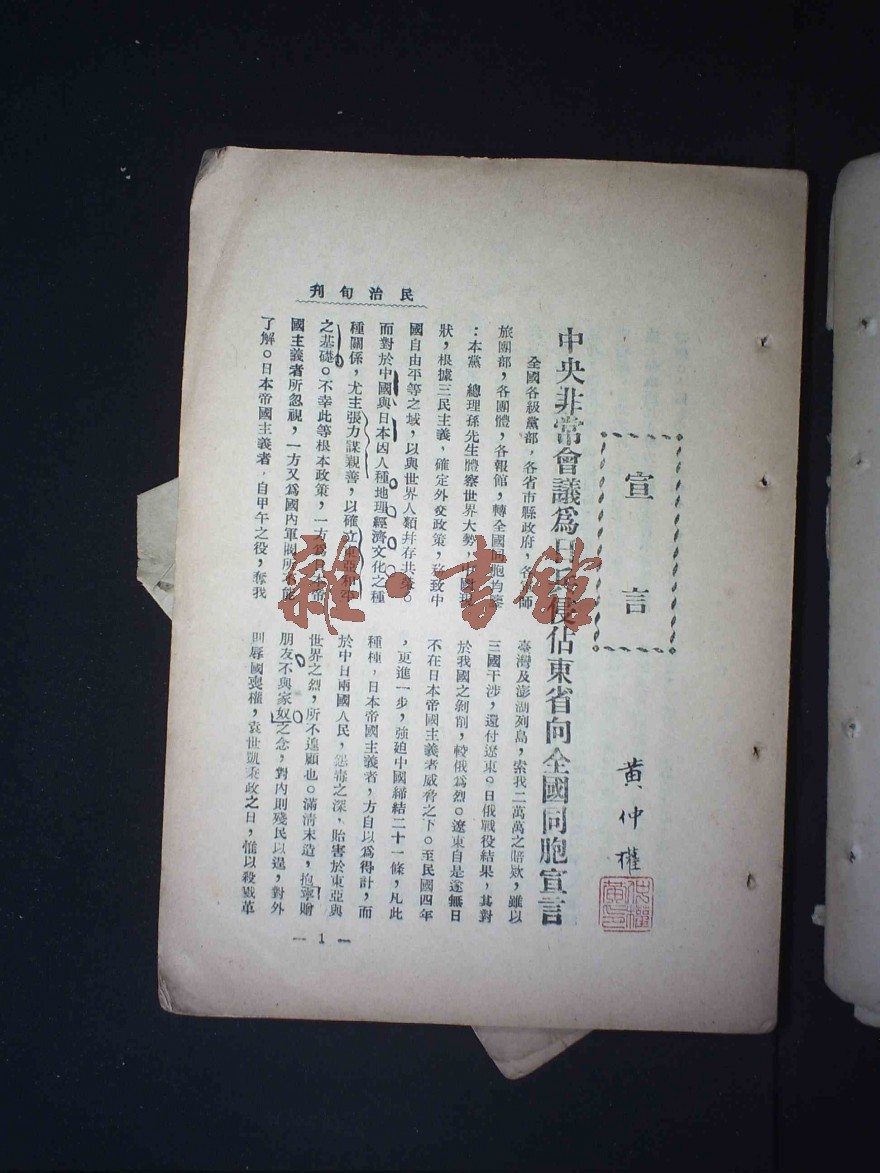 民治旬刋
宣言
黃仲權
中央非常會議爲日兵侵佔東省向全國同胞宣言
全國各級黨部，各省市縣政府，各軍師
旅團部，各團體，各報館，轉全國同胞均鑒
：本黨　總理孫先生體察世界大勢，中國現
狀，根據三民主義，確定外交政策，務致中
國自由平等之域，以與世界人類幷存共榮。
而對於中國與日本因人種地理經濟文化之種
種關係，尤主張力謀親善，以確立東亞和平
之基礎。不幸此等根本政策，一方爲日本帝
國主義者所忽視，一方又爲國內軍閥所不能
了解。日本帝國主義者，自甲午之役，奪我
臺灣及澎湖列島，索我二萬萬之賠欵，雖以
三國干涉，還付遼東。日俄戰役結果，其對
於我國之剝削，較俄爲烈。遼東自是遂無日
不在日本帝國主義者威脅之下。至民國四年
，更進一步，強迫中國締結二十一條，凡此
種種，日本帝國主義者，方自以爲得計，而
於中日兩國人民，怨毒之深，貽害於東亞與
世界之烈，所不遑顧也。滿清末造，抱寧贈
朋友不與家奴之念，對內則殘民以逞，對外
則辱國喪權，袁世凱秉政之日，惟以殺戮革
— 1 —
雜·書館